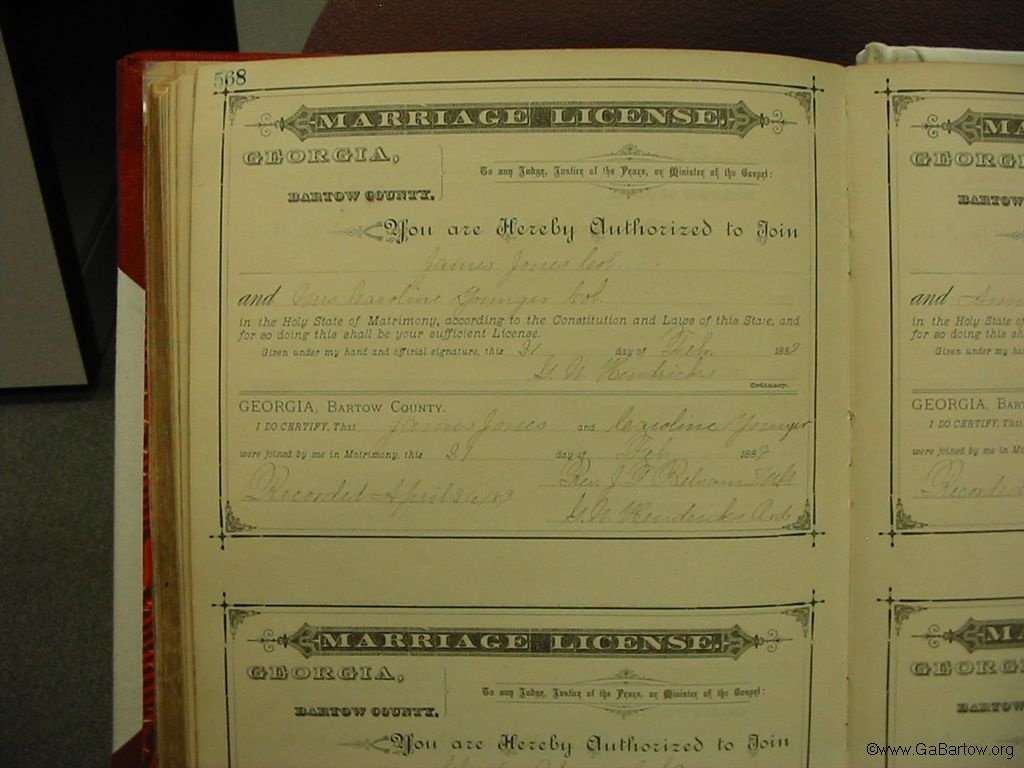 568
MARRIAGE LICENSE.
GEORGIA,
BARTOW COUNTY.
To any Judge, Justice of the Peace, or Minister of the Gospel:
You are Hereby Authorized to Join
James Jones Col.
and Mrs. Caroline Younger Col.
in the Holy State of Matrimony, according to the Constitution and Laws of this State, and
for so doing this shall be your sufficient License.
Given under my hand and official signature, this 21 day of Feb. 1889
G. W. Hendricks
Ordinary.
GEORGIA, BARTOW COUNTY.
I DO CERTIFY, That James Jones and Caroline Younger
were joined by me in Matrimony, this 21 day of Feb 1889
Rev. J. F.
Recorded April
G. W. Hendricks Ord.
MARRIAGE LICENSE.
GEORGIA,
BARTOW COUNTY.
To any Judge, Justice of the Peace, or Minister of the Gospel:
You are Hereby Authorized to Join
MA
GEORGI
BARTOW
and
in the Holy State o
for so doing this sh
Given under my ha
GEORGIA, BART
I DO CERTIFY, Th
were joined by me in M
Recorded
MA
GEORGI
BARTOW
©www.GaBartow.org